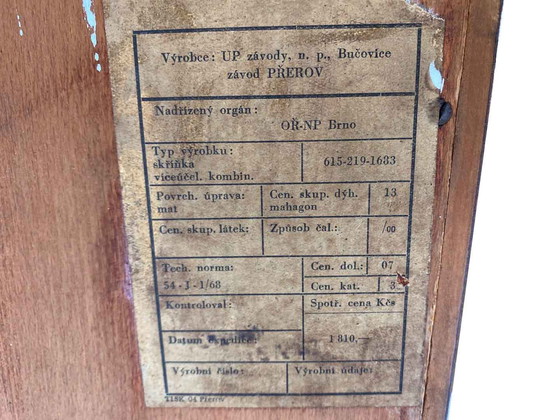 Výrobce: UP závody, n. p., Bučovice
závod PŘEROV
Nadřízený orgán:
OŘ-NP Brno
Typ výrobku:
skříňka
víceúčel. kombin.
615-219-1683
Povrch. úprava:
mat
Cen. skup. dýh.
mahagon
13
Cen. skup. látek:
Způsob čal.:
/00
Tech. norma:
54-J-1/68
Cen. dol.:
07
Cen. kat.
3
Kontroloval:
Spotř. cena Kčs
Datum expedice:
1 810,—
Výrobní číslo:
Výrobní údaje:
TISK, 04 Přerov